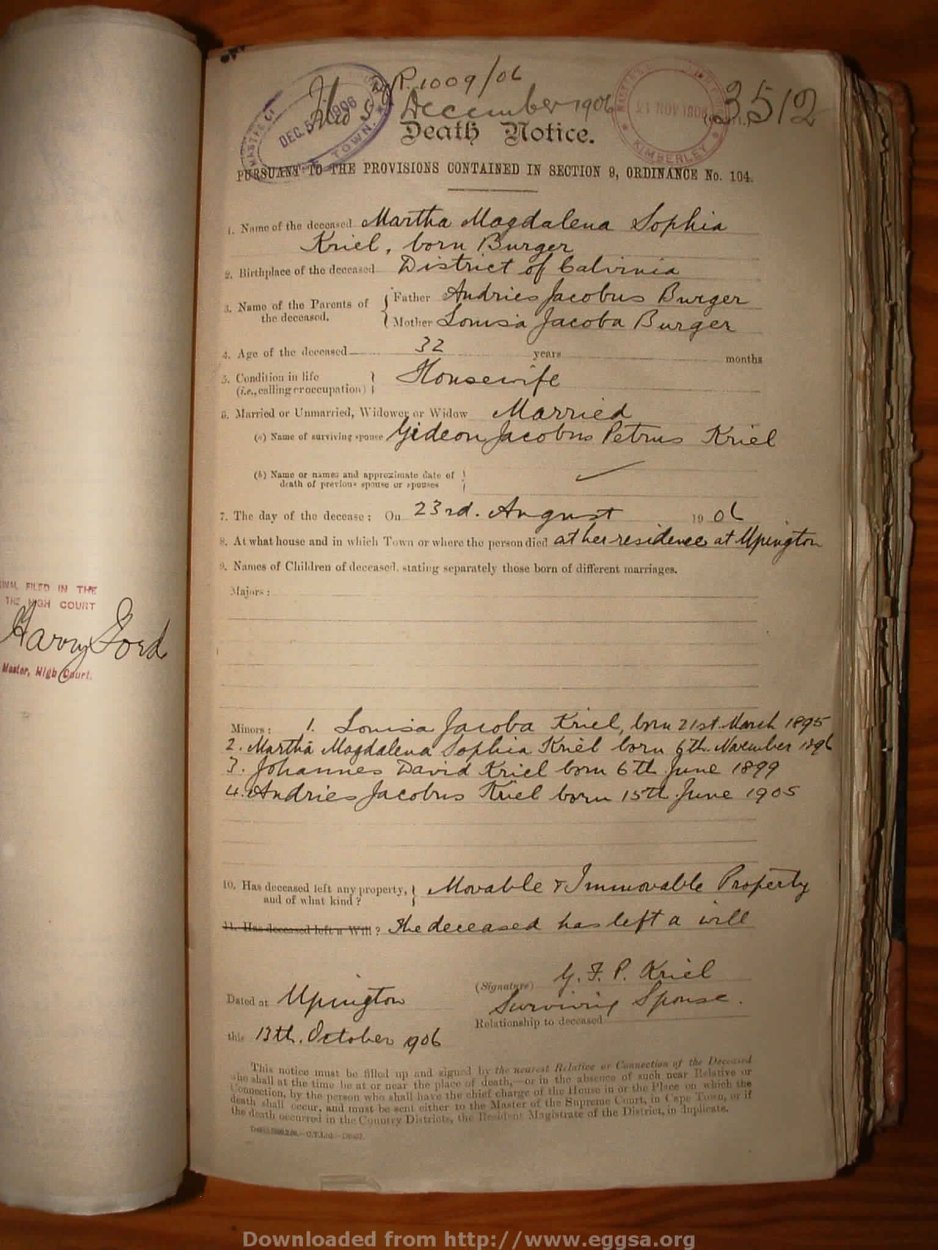 R. 1009/06
3512
December 1906
DEC. 1906
TOWN
21 NOV 1906
KIMBERLEY
Death Notice.
PURSUANT TO THE PROVISIONS CONTAINED IN SECTION 9, ORDINANCE No. 104.
1. Name of the deceased Martha Magdalena Sophia
Kriel, born Burger
2. Birthplace of the deceased District of Calvinia
3. Name of the Parents of the deceased. Father Andries Jacobus Burger
Mother Louisa Jacoba Burger
4. Age of the deceased 32 years months
5. Condition in life (i.e., calling or occupation) Housewife
6. Married or Unmarried, Widower or Widow Married
(a) Name of surviving spouse Gideon Jacobus Petrus Kriel
(b) Name or names and approximate date of
death of previous spouse or spouses
7. The day of the decease: On 23rd. August 1906
8. At what house and in which Town or where the person died at her residence at Upington
9. Names of Children of deceased, stating separately those born of different marriages.
Majors:
Minors: 1. Louisa Jacoba Kriel, born 21st March 1895
2. Martha Magdalena Sophia Kriel born 6th November 1896
3. Johannes David Kriel born 6th June 1899
4. Andries Jacobus Kriel born 15th June 1905
10. Has deceased left any property, and of what kind? Movable & Immovable Property
11. Has deceased left a Will? The deceased has left a will
(Signature) G. J. P. Kriel
Dated at Upington Surviving Spouse.
Relationship to deceased
this 13th. October 1906
This notice must be filled up and signed by the nearest Relative or Connection of the Deceased
who shall at the time be at or near the place of death,—or in the absence of such near Relative or
Connection, by the person who shall have the chief charge of the House in or the Place on which the
death shall occur, and must be sent either to the Master of the Supreme Court, in Cape Town, or if
the death occurred in the Country Districts, the Resident Magistrate of the District, in duplicate.
FILED IN THE
THE HIGH COURT
Harry Ford
Master, High Court.
Downloaded from http://www.eggsa.org